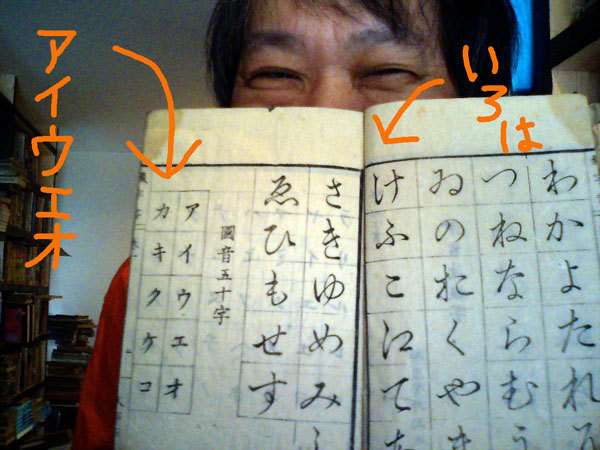 いろは
アイウエオ
わかよたれ
つねならむ
ゐのおくや
けふこ江て
さきゆめみ
ゑひもせす
國音五十字
アイウエオ
カキクケコ